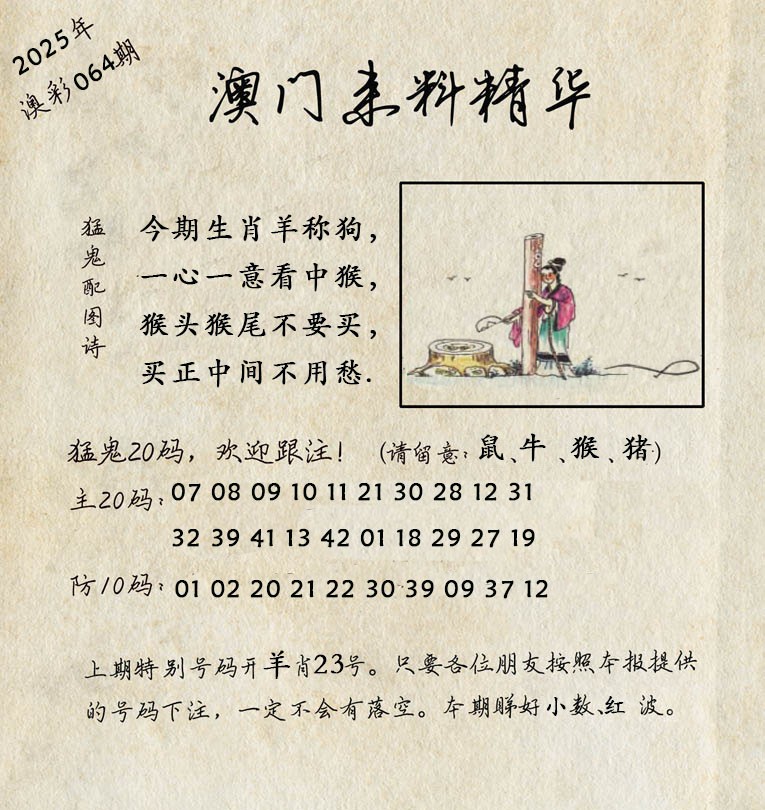 2025年
澳彩064期
澳门来料精华
猛鬼配图诗
今期生肖羊称狗，
一心一意看中猴，
猴头猴尾不要买，
买正中间不用愁.
猛鬼20码，欢迎跟注！（请留意：鼠、牛、猴、猪）
主20码：07 08 09 10 11 21 30 28 12 31
32 39 41 13 42 01 18 29 27 19
防10码：01 02 20 21 22 30 39 09 37 12
上期特别号码开羊肖23号。只要各位朋友按照本报提供
的号码下注，一定不会有落空。本期睇好小数、红 波。